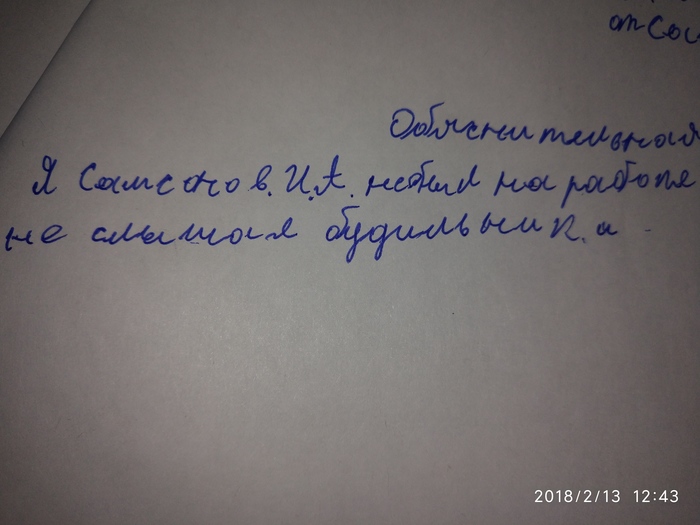 от Сам
Обяснительная
Я Самсонов. И.А. небыл на работе
не слышал будильник. а
2018/2/13 12:43